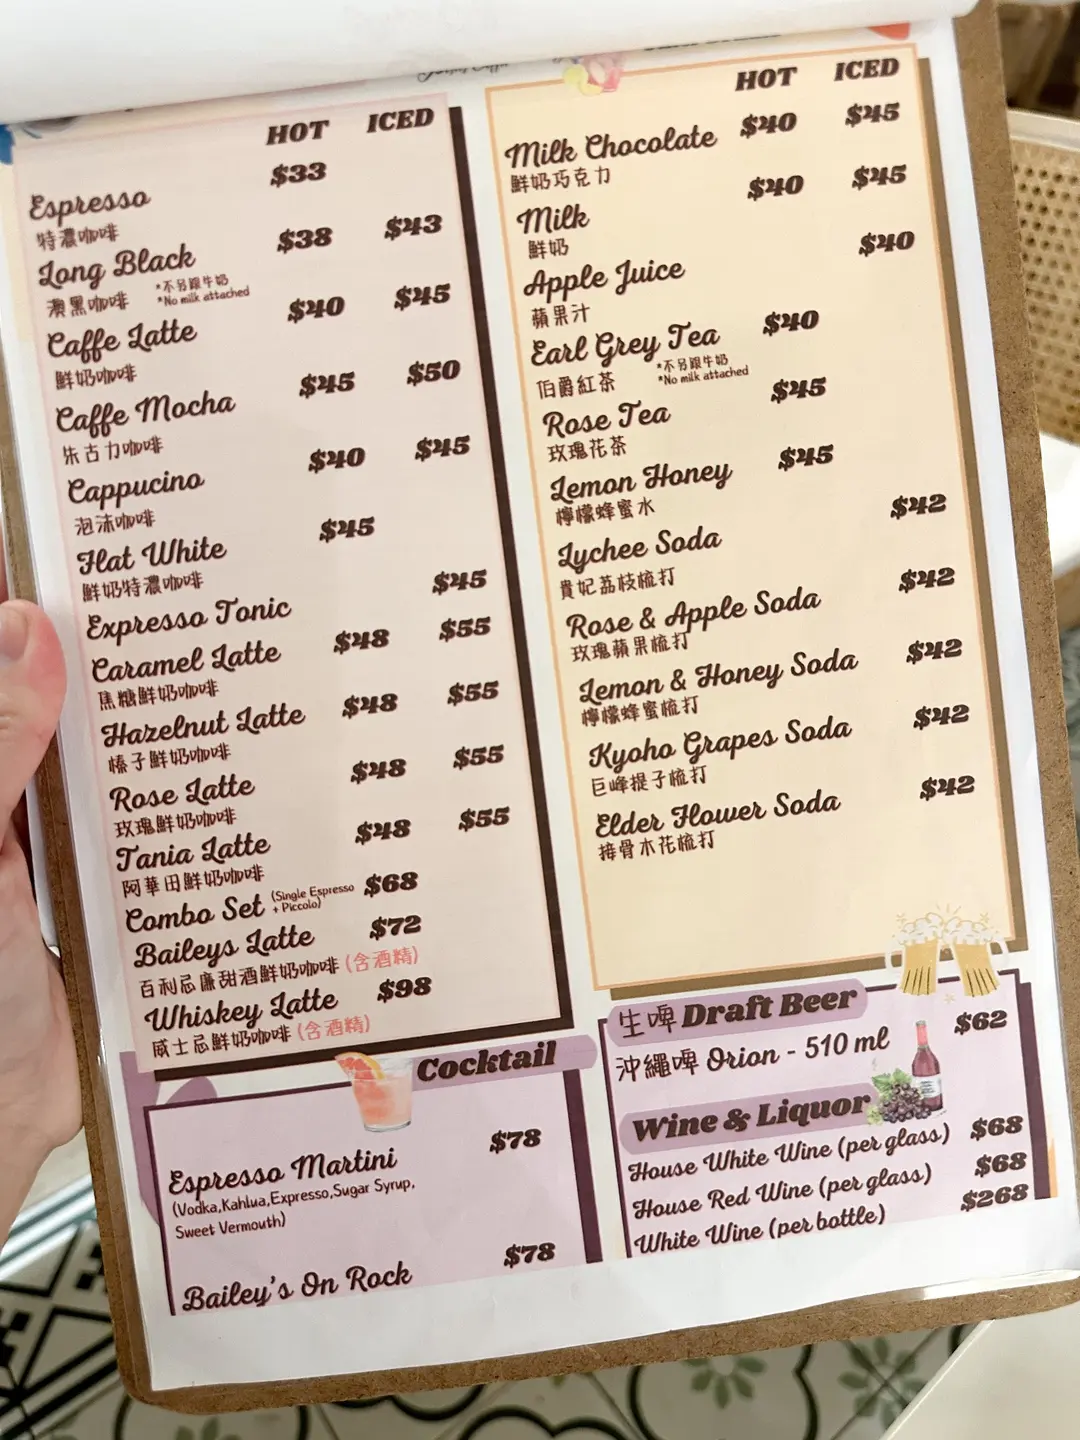 HOT ICED
Espresso $33
特濃咖啡
Long Black $38 $43
澳黑咖啡 *不另跟牛奶
*No milk attached
Caffe Latte $40 $45
鮮奶咖啡
Caffe Mocha $45 $50
朱古力咖啡
Cappucino $40 $45
泡沫咖啡
Flat White $45
鮮奶特濃咖啡
Expresso Tonic $45
Caramel Latte $48 $55
焦糖鮮奶咖啡
Hazelnut Latte $48 $55
榛子鮮奶咖啡
Rose Latte $48 $55
玫瑰鮮奶咖啡
Tania Latte $48 $55
阿華田鮮奶咖啡
Combo Set (Single Espresso + Piccolo) $68
Baileys Latte $72
百利忌廉甜酒鮮奶咖啡 (含酒精)
Whiskey Latte $98
威士忌鮮奶咖啡 (含酒精)
Cocktail
Espresso Martini $78
(Vodka,Kahlua,Expresso,Sugar Syrup,
Sweet Vermouth)
Bailey's On Rock $78
HOT ICED
Milk Chocolate $40 $45
鮮奶巧克力
Milk $40 $45
鮮奶
Apple Juice $40
蘋果汁
Earl Grey Tea $40
伯爵紅茶 *不另跟牛奶
*No milk attached
Rose Tea $45
玫瑰花茶
Lemon Honey $45
檸檬蜂蜜水
Lychee Soda $42
貴妃荔枝梳打
Rose & Apple Soda $42
玫瑰蘋果梳打
Lemon & Honey Soda $42
檸檬蜂蜜梳打
Kyoho Grapes Soda $42
巨峰提子梳打
Elder Flower Soda $42
接骨木花梳打
生啤 Draft Beer
沖繩啤 Orion - 510 ml $62
Wine & Liquor
House White Wine (per glass) $68
House Red Wine (per glass) $68
White Wine (per bottle) $268